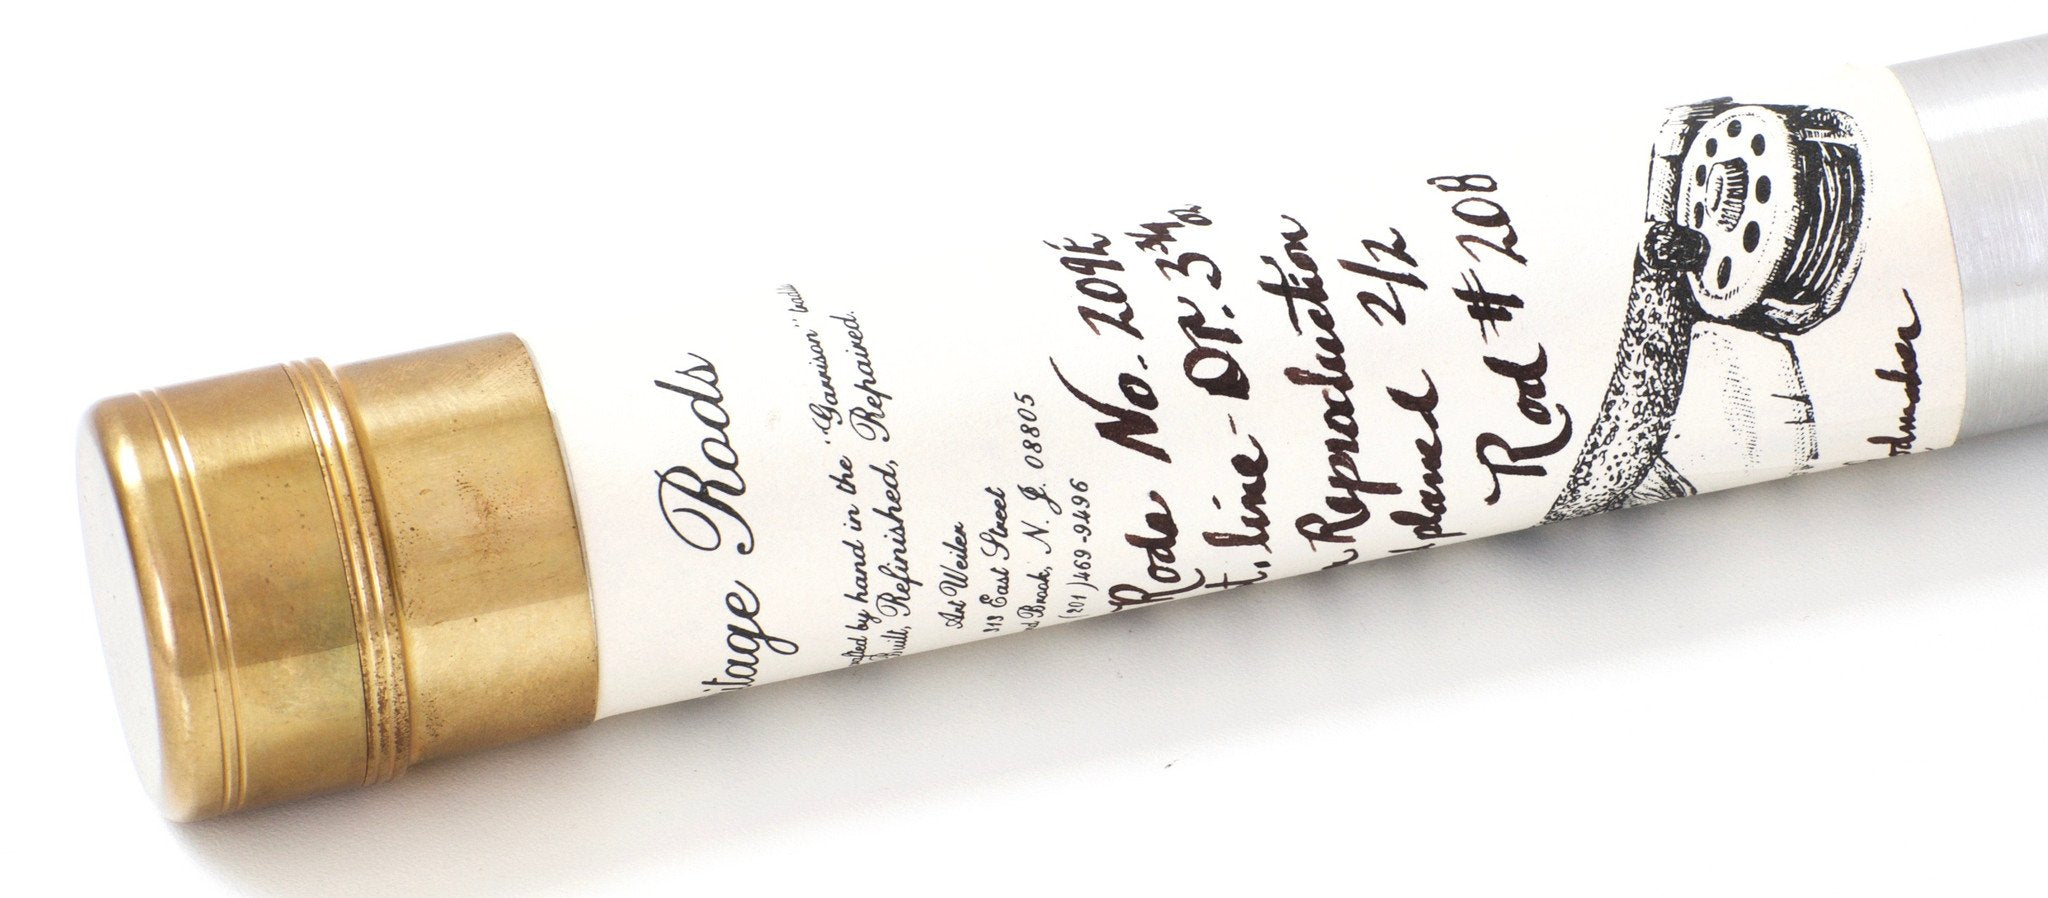 itage Rods
afted by hand in the "Garrison" tradi
Built, Refinished, Repaired.
Art Weiler
313 East Street
d Brook, N. J. 08805
(201) 469-9496
Rods No. 209E
t, line - DT. 3 3/4 oz
n Reproduction
planed 2/2
Rod # 208
odmaker